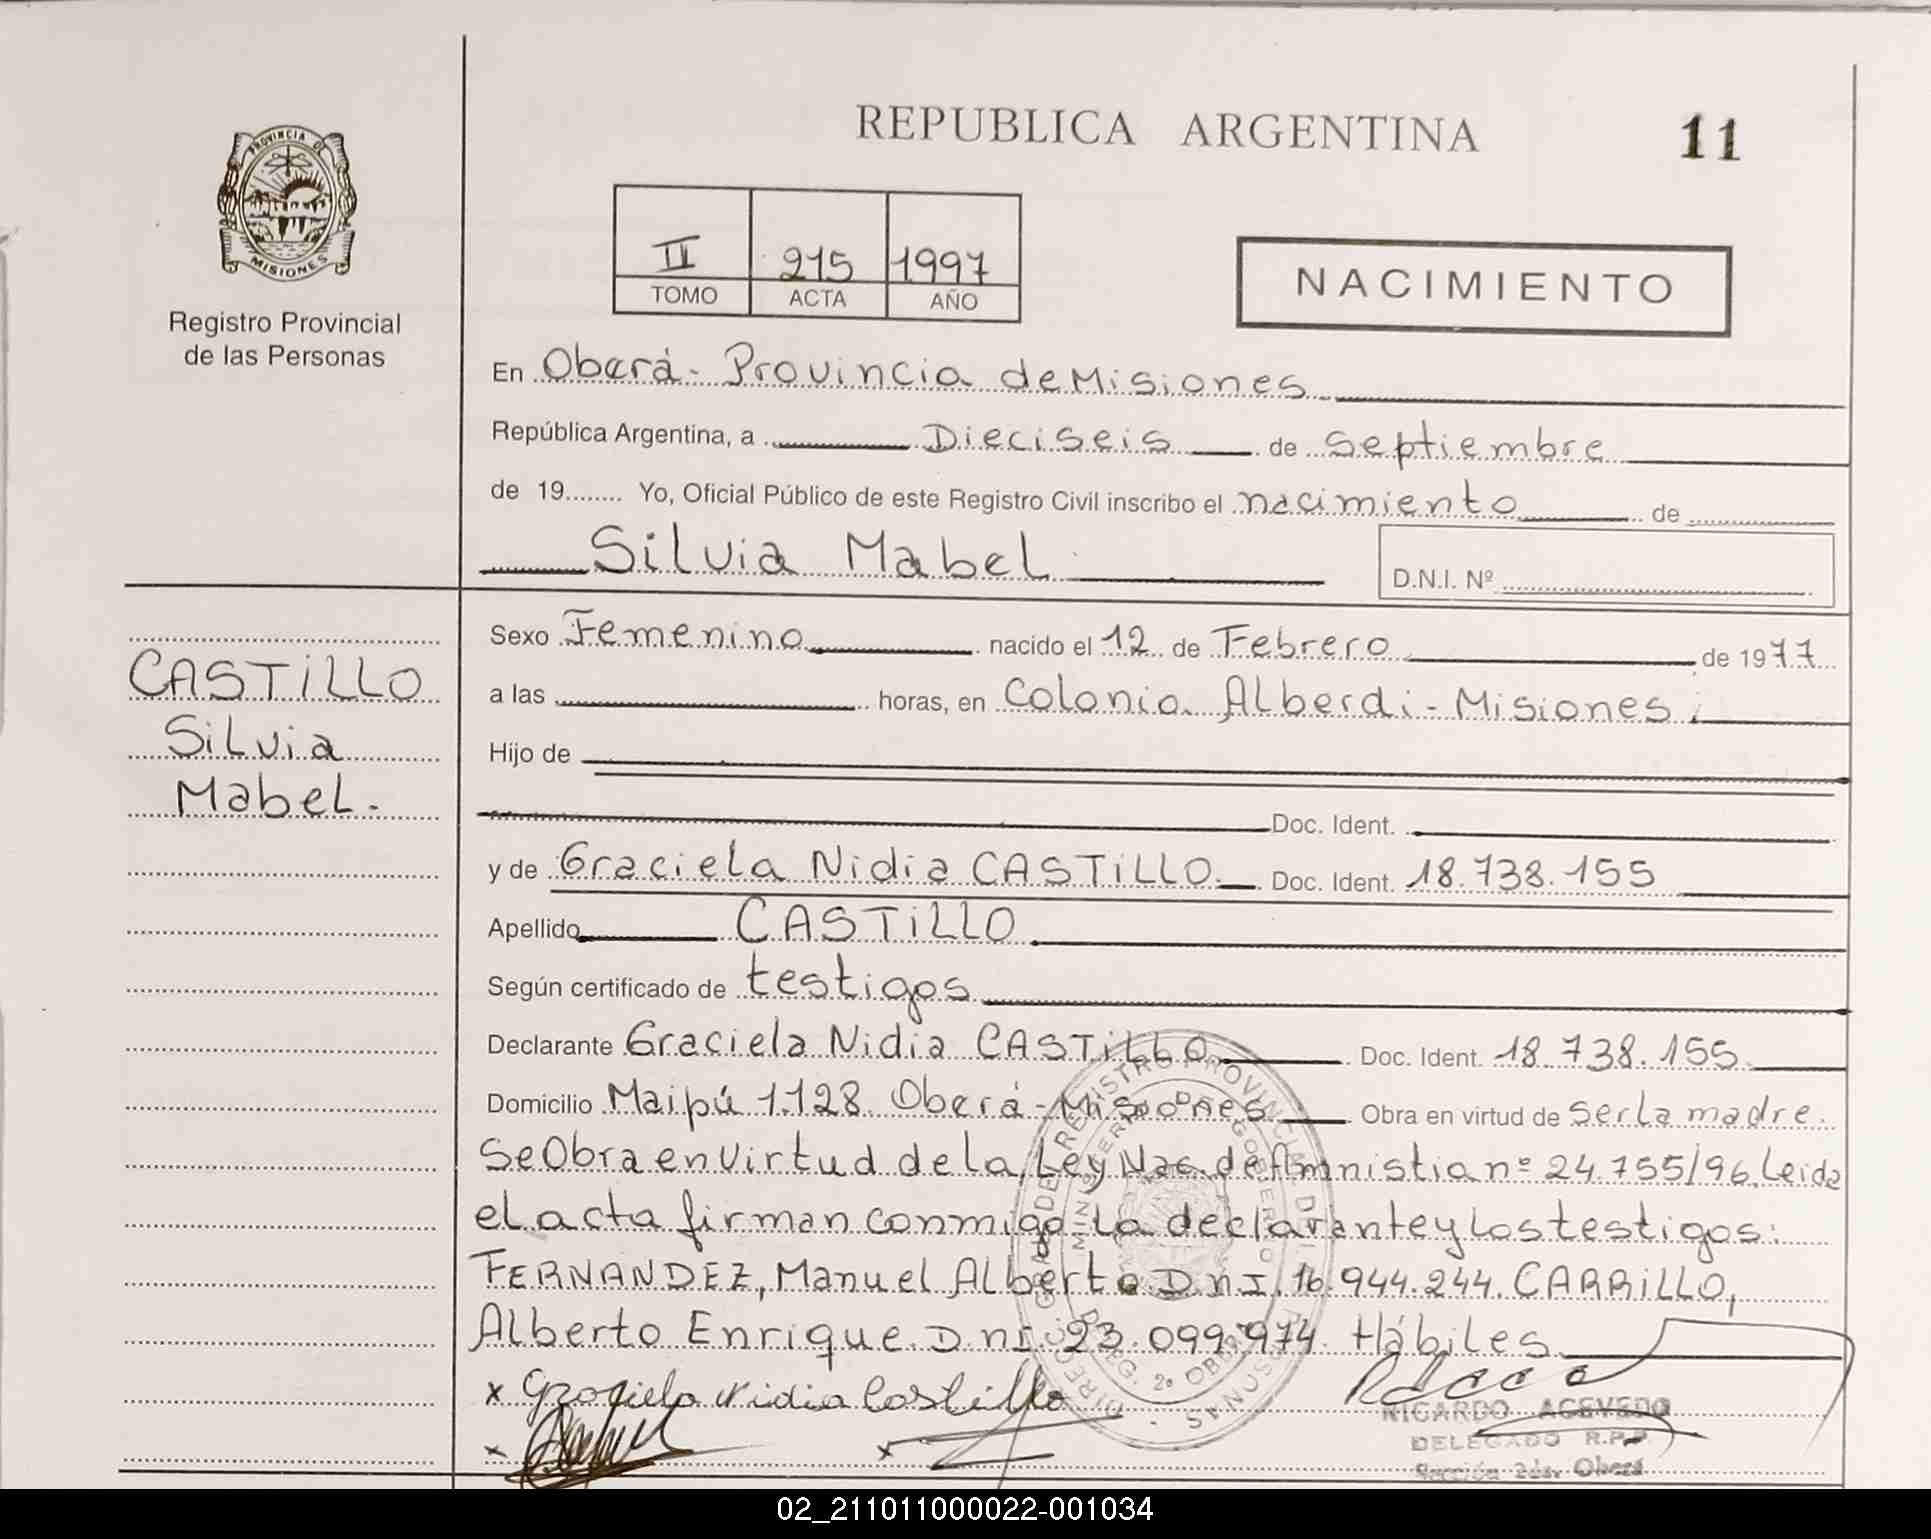 REPUBLICA ARGENTINA
11
PROVINCIA DE
MISIONES
Registro Provincial
de las Personas
II 215 1997
TOMO ACTA AÑO
NACIMIENTO
En Oberá - Provincia de Misiones
República Argentina, a Dieciseis de Septiembre
de 19........ Yo, Oficial Público de este Registro Civil inscribo el nacimiento de
Silvia Mabel
D.N.I. Nº
CASTiLLO
SiLvia
MabeL.
Sexo Femenino nacido el 12 de Febrero de 1977
a las horas, en Colonia Alberdi - Misiones
Hijo de
Doc. Ident.
y de Graciela Nidia CASTiLLO. Doc. Ident. 18.738.155
Apellido CASTiLLO
Según certificado de testigos
Declarante Graciela Nidia CASTiLLO Doc. Ident. 18.738.155
Domicilio Maipú 1.128 Oberá - Misiones Obra en virtud de Ser la madre.
Se Obra en Virtud de la Ley Nac. de Amnistia nº 24.755/96. Leida
el acta firman conmigo la declarante y los testigos:
FERNANDEZ, Manuel Alberto D.n.I. 16.944.244. CARRiLLO,
Alberto Enrique. D.n.I. 23.099.974. Hábiles
x Graciela Nidia Castillo
x x
RICARDO ACEVEDO
DELEGADO R.P.P.
Sección 2da. Oberá
02_211011000022-001034